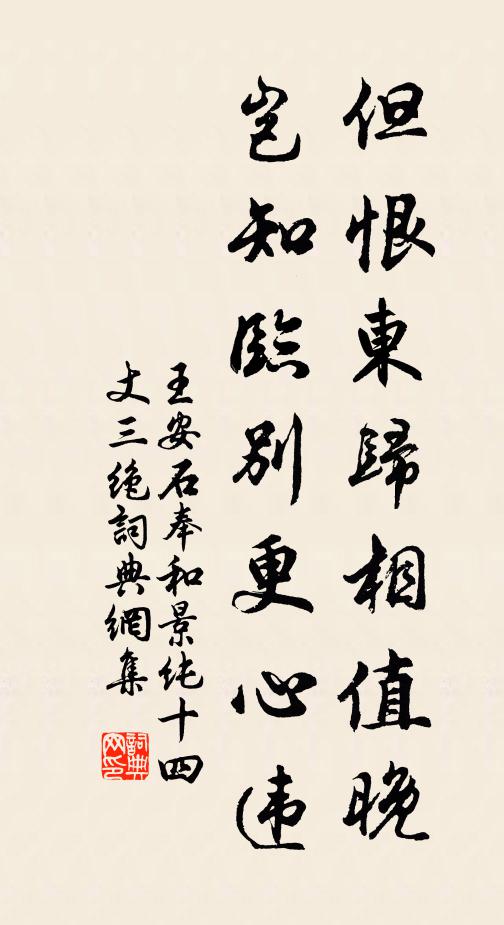 但恨東歸相值晚
豈知臨別更心违
王安石奉和景纯十四
丈三绝詞典網集
詞典
网印